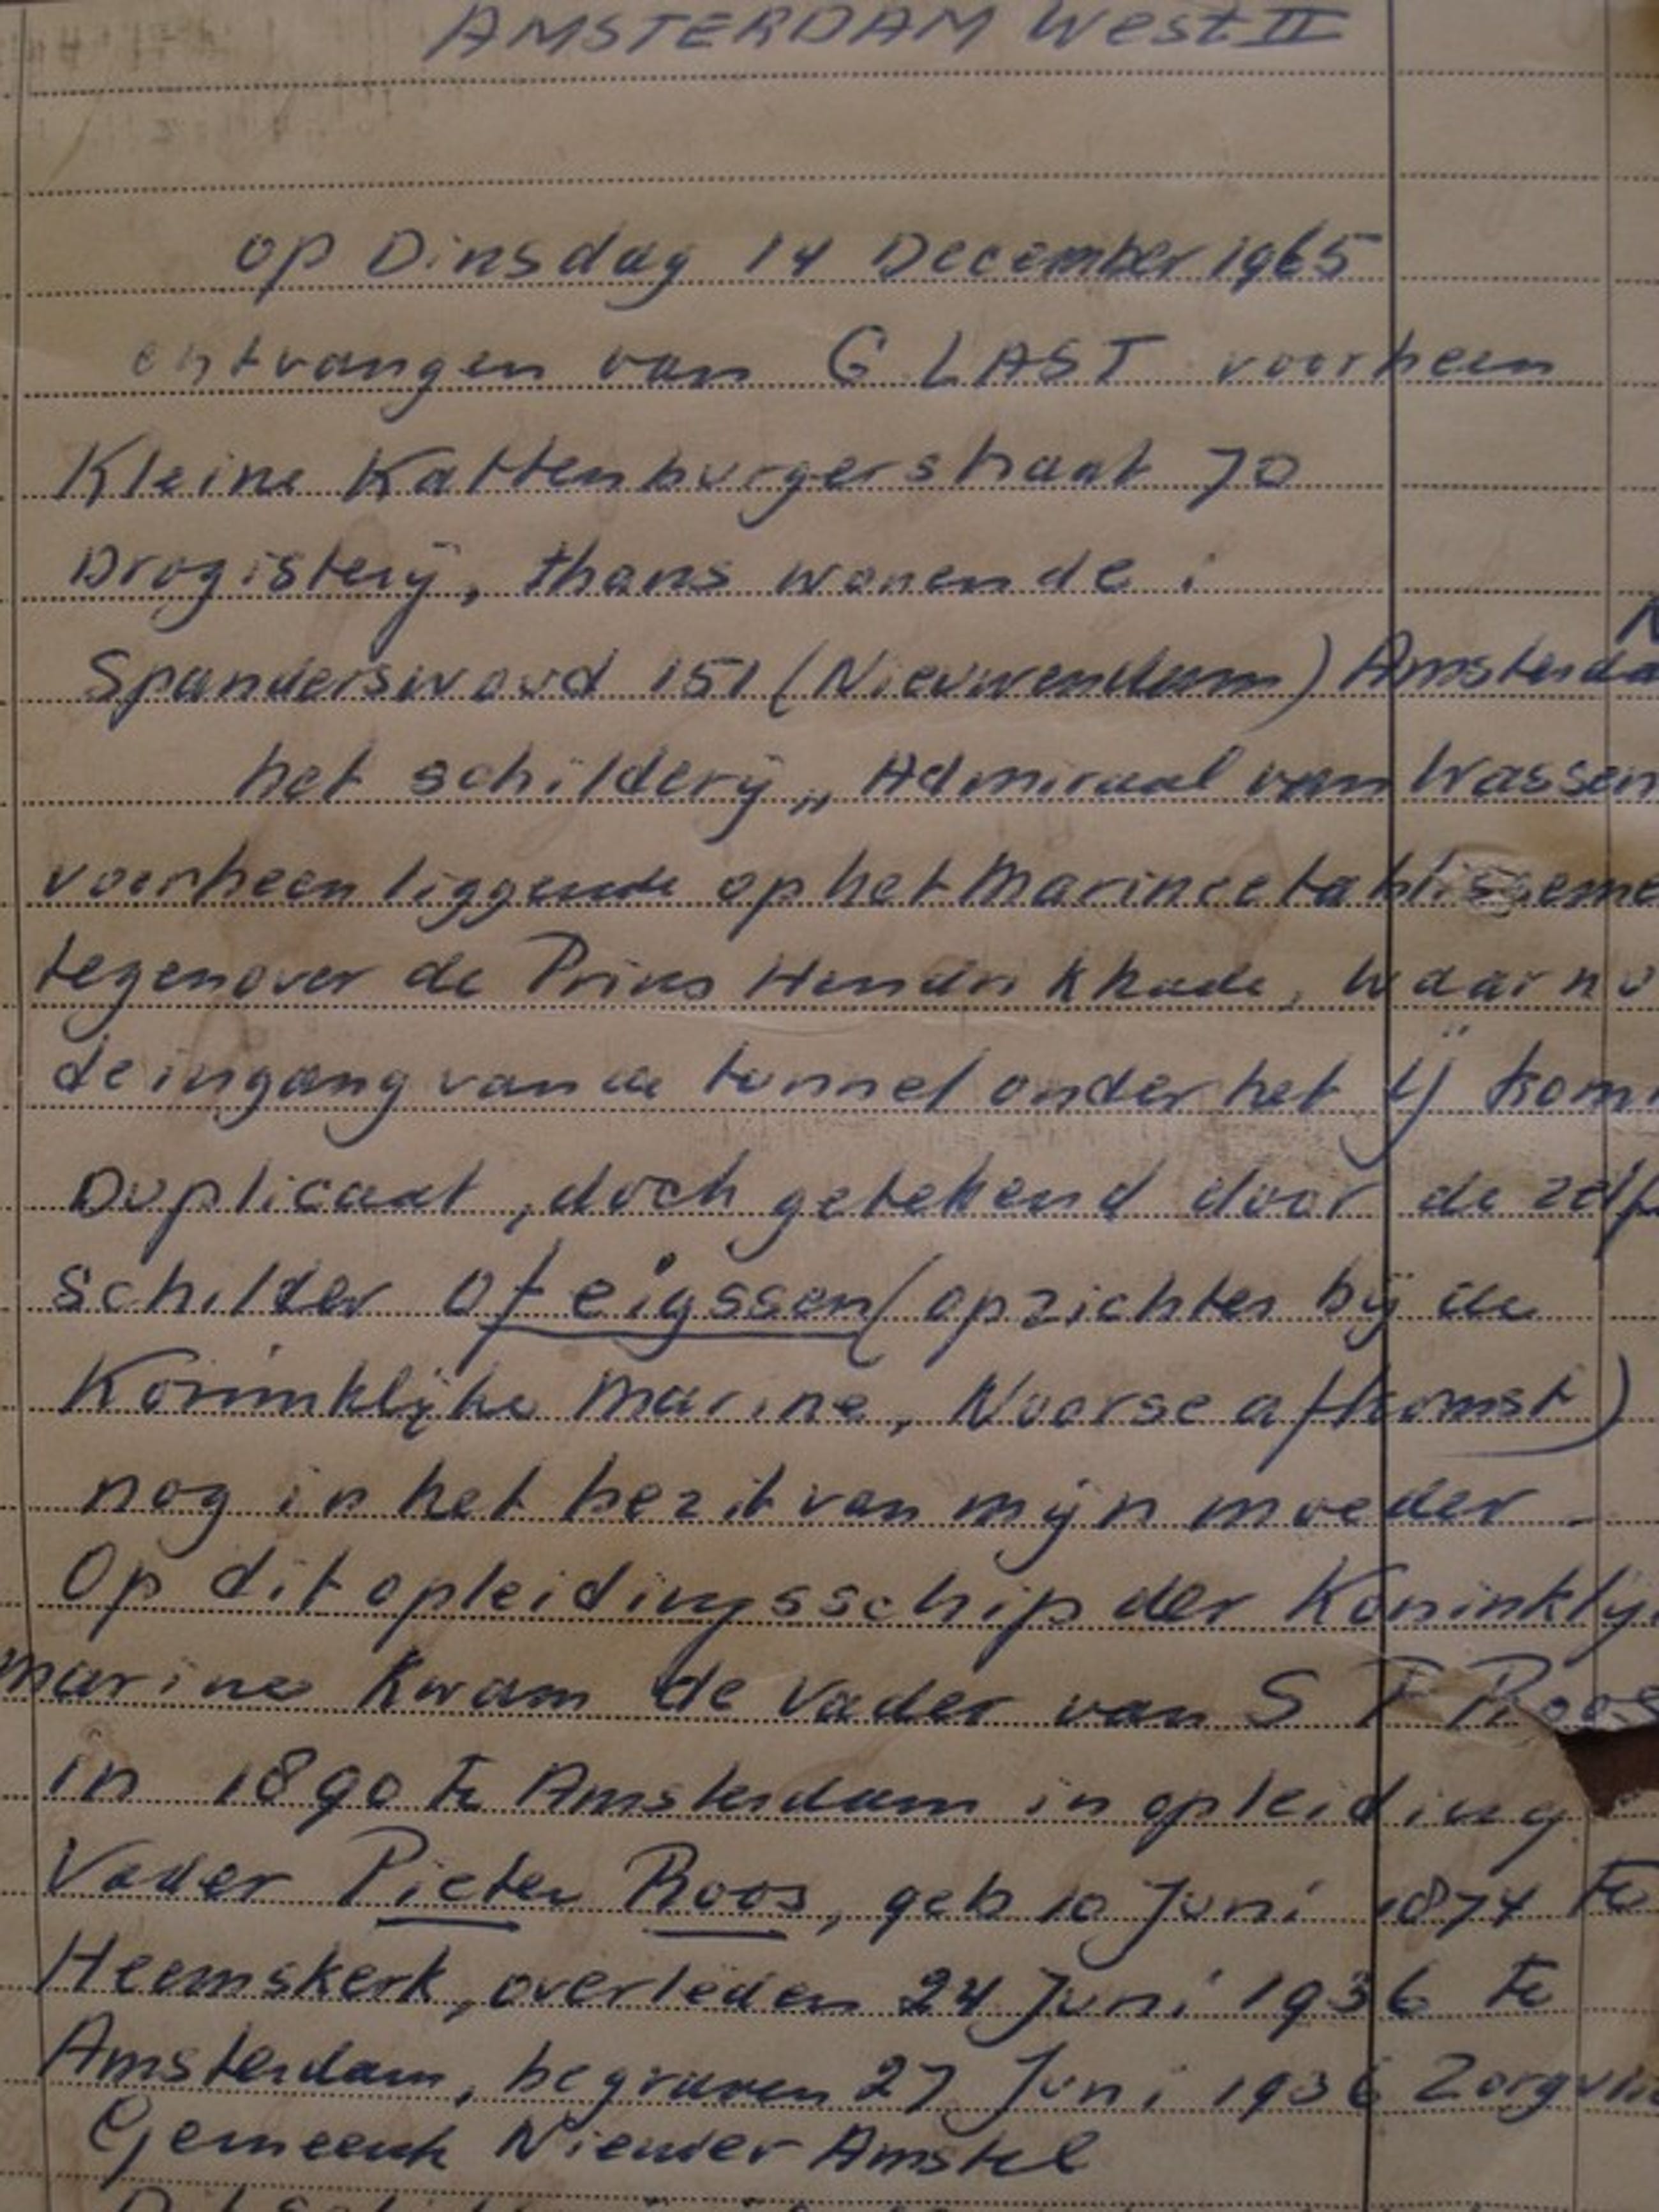 AMSTERDAM West II
op Dinsdag 14 December 1965
ontvangen van G LAST voorheen
Kleine Kattenburgerstraat 70
Drogisterij, thans wonende :
Spanderswoud 151 (Nieuwendam) Amsterda
het schilderij „ Admiraal van Wassen
voorheen liggende op het Marineetablisseme
tegenover de Prins Hendrikkade, waar nu
de ingang van de tunnel onder het ij kom
Duplicaat, doch getekend door de zelf
schilder Ofeigssen (opzichter bij de
Koninklijke Marine, Noorse afkomst)
nog in het bezit van mijn moeder -
Op dit opleidingsschip der Koninklij
Marine kwam de Vader van S P Roos
in 1890 te Amsterdam in opleiding
Vader Pieter Roos, geb 10 Juni 1874 te
Heemskerk, overleden 24 Juni 1936 te
Amsterdam, begraven 27 Juni 1936 Zorgvli
Gemeente Nieuwer Amstel